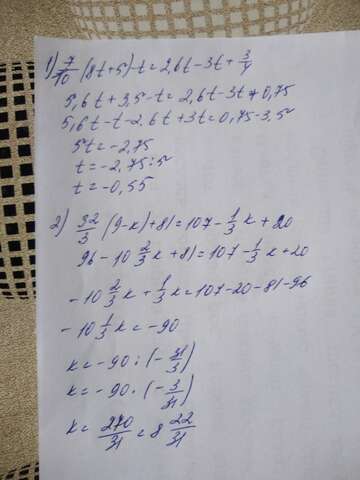 1) 7/10 (8t+5)-t=2,6t-3t+3/4
5,6t+3,5-t=2,6t-3t+0,75
5,6t-t-2,6t+3t=0,75-3,5
5t=-2,75
t=-2,75:5
t=-0,55
2) 32/3 (9-k)+81=107-1/3 k+20
96-10 2/3 k+81=107-1/3 k+20
-10 2/3 k+1/3 k=107-20-81-96
-10 1/3 k=-90
k=-90:(-31/3)
k=-90·(-3/31)
k=270/31=8 22/31